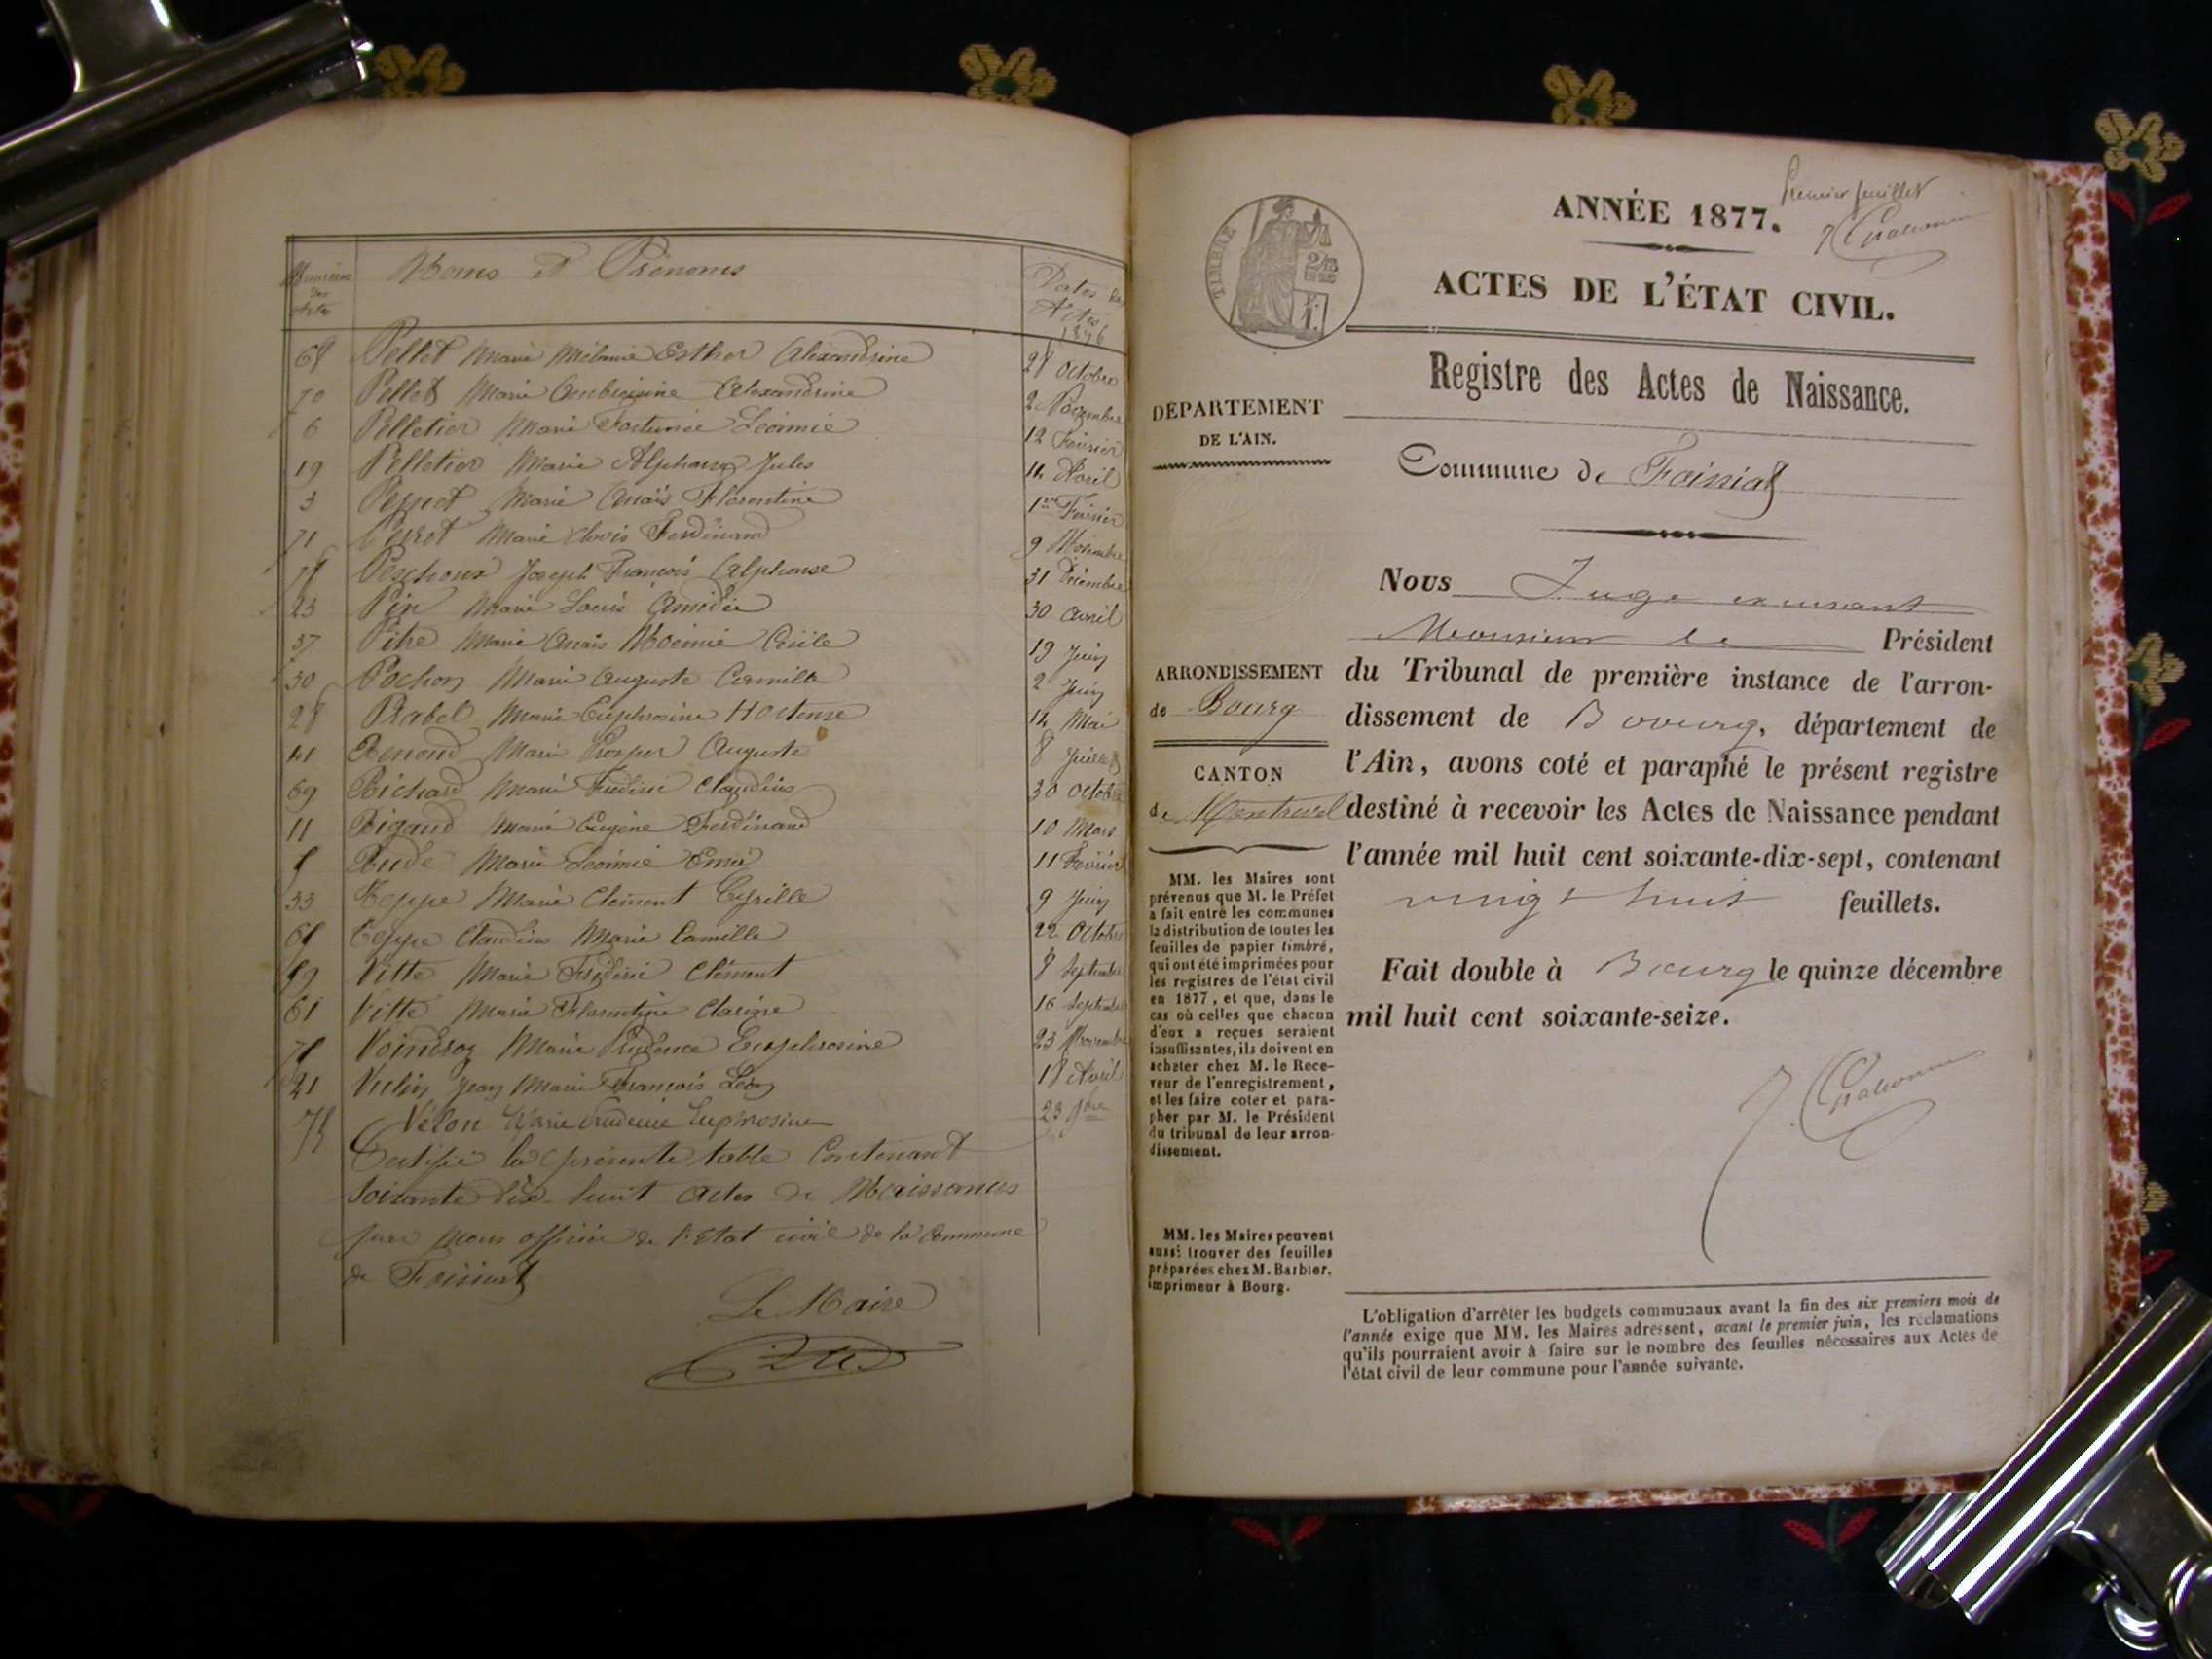 Numéros des Actes
Noms et Prénoms
Dates des Actes 1876
68 Pellet Marie Mélanie Esther Alexandrine 28 Octobre
70 Pellet Marie Ambroisine Alexandrine 2 Novembre
6 Pelletier Marie Fortunée Léonnie 12 Février
19 Pelletier Marie Alphonse Jules 14 Avril
3 Marie Anaïs Florentine 1er Février
71 Perret Marie Clovis Ferdinand 9 Novembre
78 Peschoux Joseph François Alphonse 31 Décembre
23 Pin Marie Louis Amédée 30 avril
37 Pitre Marie Anaïs Noémie Cécile 19 Juin
30 Pochon Marie Auguste Camille 2 Juin
28 Rabel Marie Euphrosine Hortense 14 Mai
41 Renoud Marie Prosper Auguste 8 Juillet
69 Richard Marie Frédéric Claudius 30 Octobre
11 Rigaud Marie Eugène Ferdinand 10 Mars
Rude Marie Léonnie Emée 11 Février
33 Teppe Marie Clément Cyrille 9 Juin
Teppe Claudius Marie Camille 22 Octobre
59 Vitte Marie Frédéric Clément 8 Septembre
61 Vitte Marie Florentine Clarisse 16 Septembre
Marie Prudence Euphrosine 23 Novembre
21 Vulin Jean Marie François Léon 18 Avril
75 Vélon Marie Prudence Euphrosine 23 9bre
Certifié la présente table Contenant
Soixante dix-huit actes de Naissances
par nous officier de l'Etat civil de la Commune
de Foissiat
Le Maire
Premier feuillet
ANNÉE 1877.
TIMBRE
ACTES DE L'ÉTAT CIVIL.
Registre des Actes de Naissance.
DÉPARTEMENT
DE L'AIN.
Commune de Foissiat
Nous Juge
Monsieur le Président
ARRONDISSEMENT
de Bourg
CANTON
de Montrevel
du Tribunal de première instance de l'arron-
dissement de Bourg, département de
l'Ain, avons coté et paraphé le présent registre
destiné à recevoir les Actes de Naissance pendant
l'année mil huit cent soixante-dix-sept, contenant
vingt huit feuillets.
Fait double à Bourg le quinze décembre
mil huit cent soixante-seize.
MM. les Maires sont
prévenus que M. le Préfet
a fait entre les communes
la distribution de toutes les
feuilles de papier timbré,
qui ont été imprimées pour
les registres de l'état civil
en 1877, et que, dans le
cas où celles que chacun
d'eux a reçues seraient
insuffisantes, ils doivent en
acheter chez M. le Rece-
veur de l'enregistrement,
et les faire coter et para-
pher par M. le Président
du tribunal de leur arron-
dissement.
MM. les Maires peuvent
aussi trouver des feuilles
préparées chez M. Barbier,
imprimeur à Bourg.
L'obligation d'arrêter les budgets communaux avant la fin des six premiers mois de
l'année exige que MM. les Maires adressent, avant le premier juin, les réclamations
qu'ils pourraient avoir à faire sur le nombre des feuilles nécessaires aux Actes de
l'état civil de leur commune pour l'année suivante.